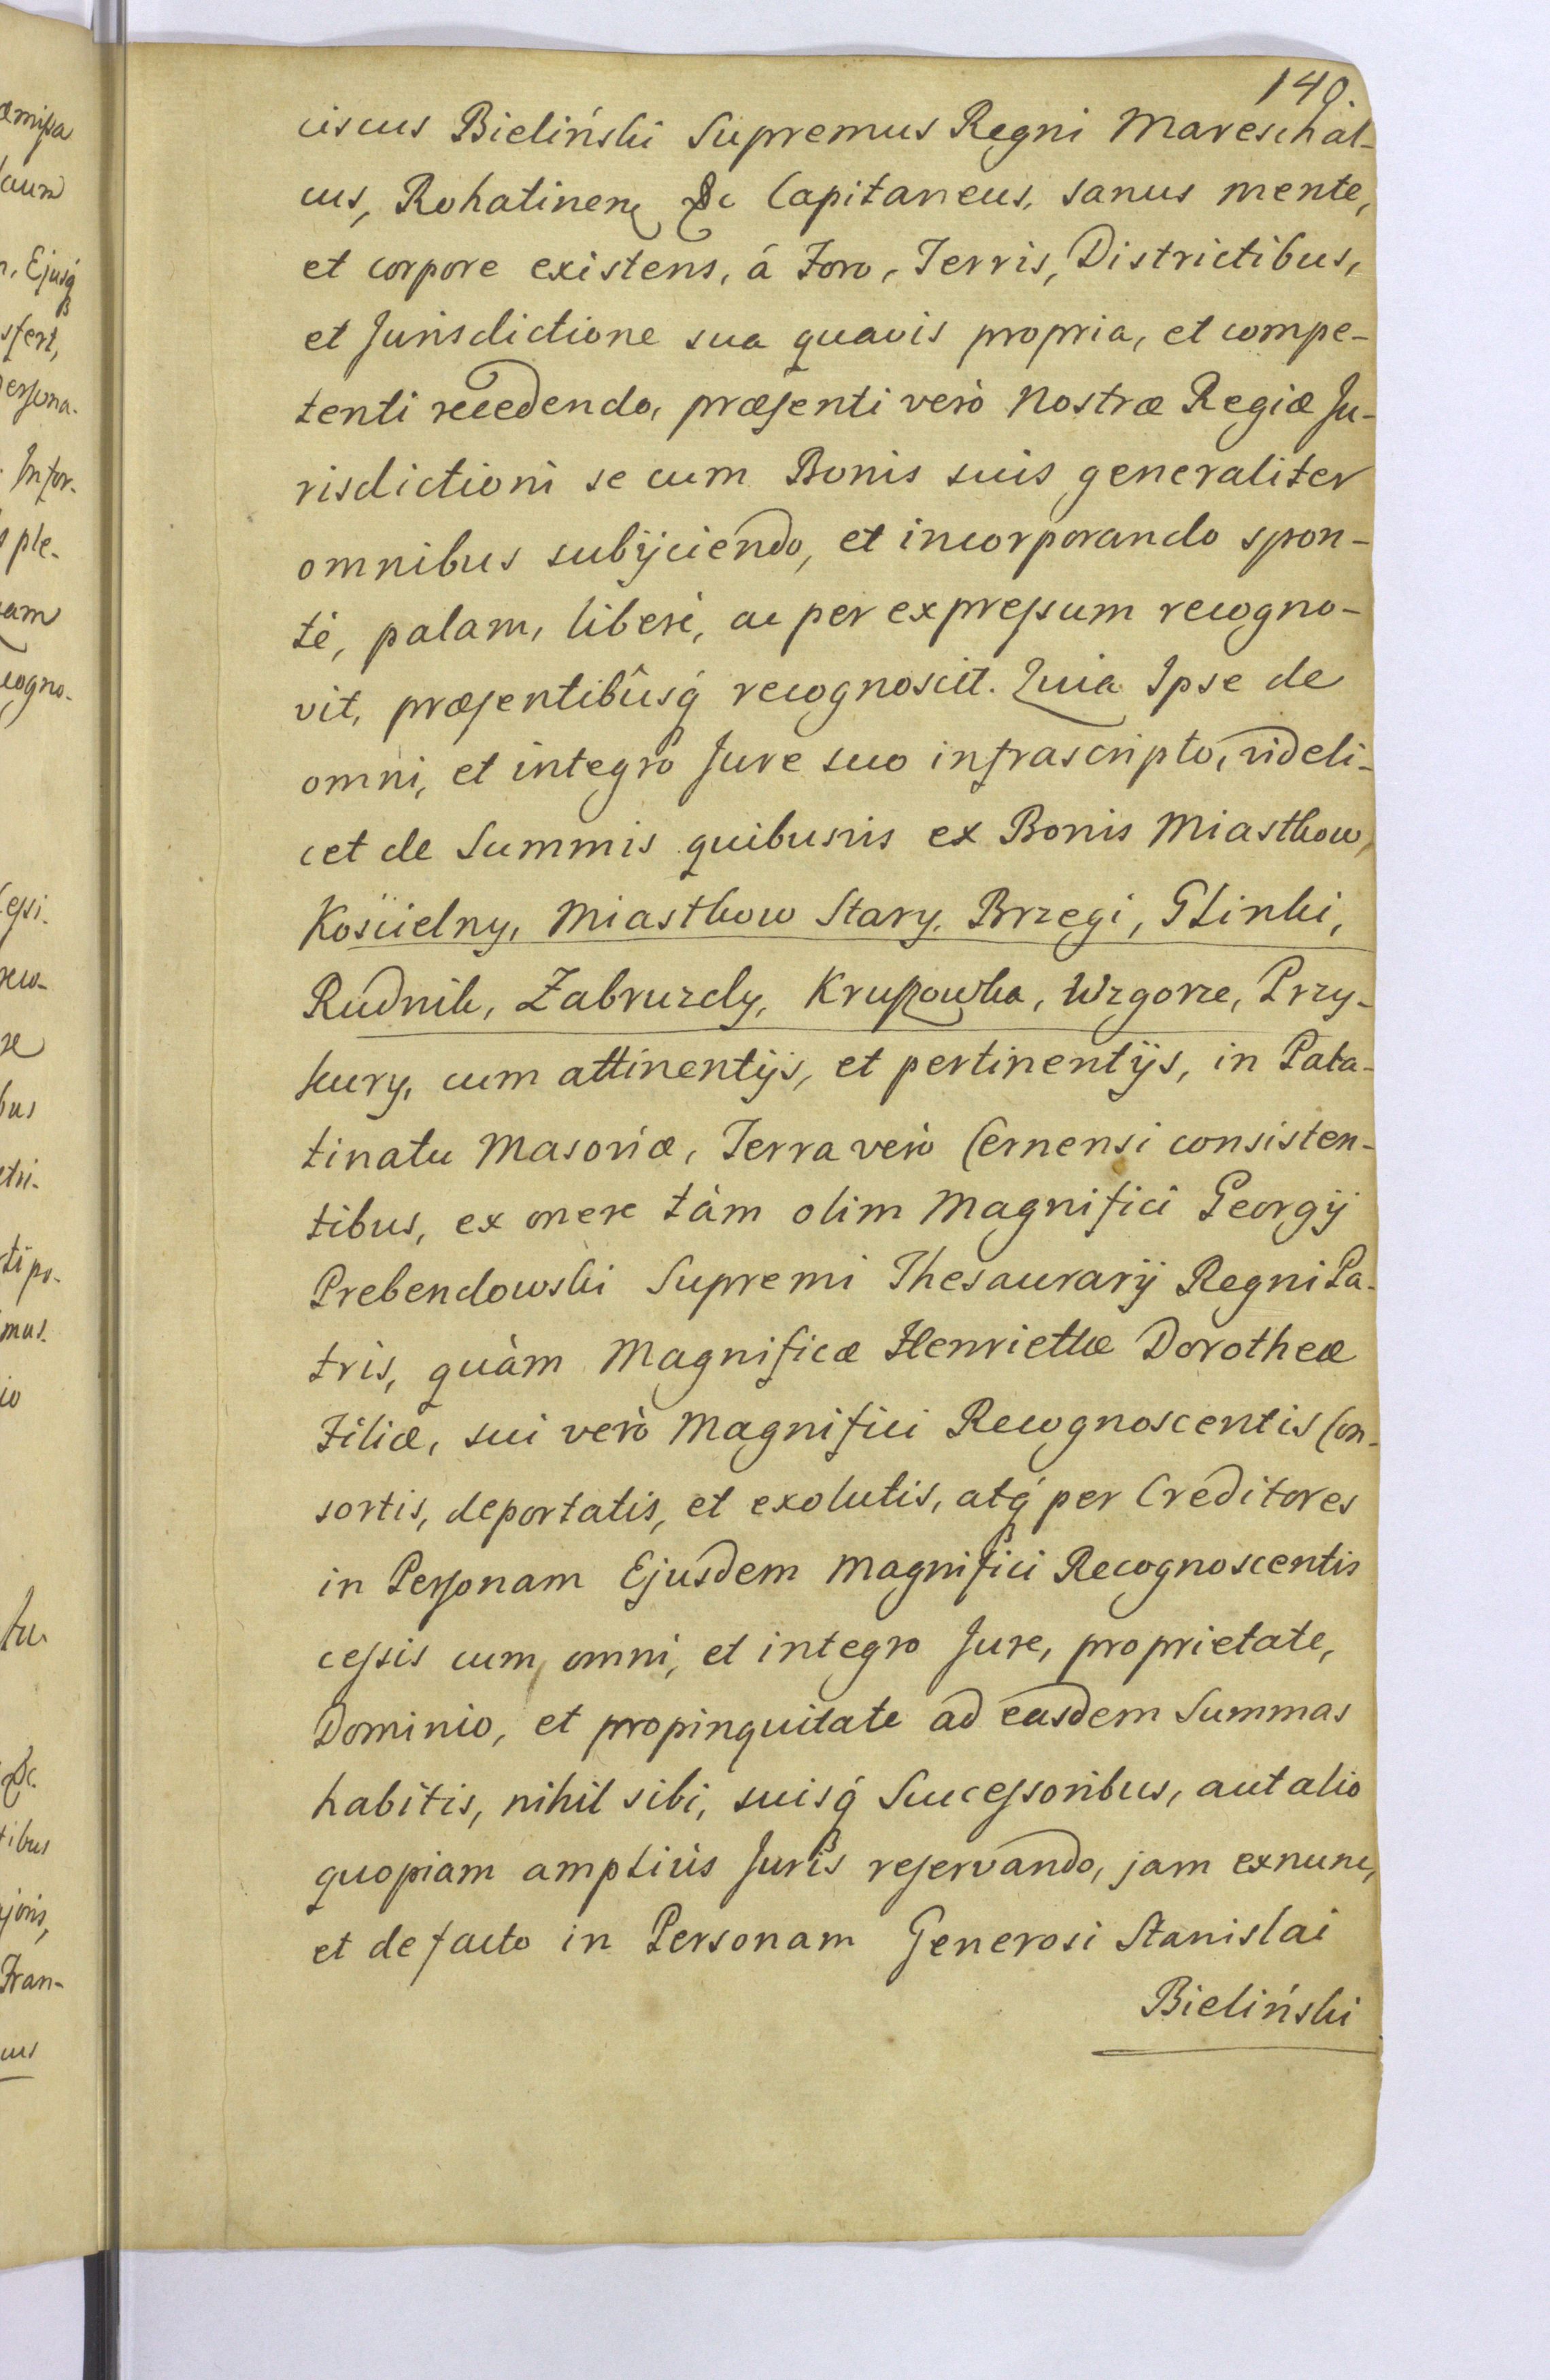 140.
ciscus Bieliński Supremus Regni Mareschal-
cus, Rohatinen &c Capitaneus, sanus mente,
et corpore existens, á Foro, Terris, Districtibus,
et Jurisdictione sua quavis propria, et compe-
tenti recedendo, præsenti verò Nostræ Regiæ Ju-
risdictioni se cum Bonis suis generaliter
omnibus subijciendo, et incorporando spon-
tè, palam, liberè, ac per expressum recogno-
vit, præsentibûsq́ recognoscit. Quia Ipse de
omni, et integro Jure suo infrascripto, videli-
cet de Summis quibusvis ex Bonis Miastkow,
Kościelny, Miastkow Stary, Brzegi, Glinki,
Rudnik, Zabruzdy, Krupowka, Wzgorze, Przy-
kury, cum attinentijs, et pertinentijs, in Pala-
tinatu Masoviæ, Terra verò Cernensi consisten-
tibus, ex onere tàm olim Magnifici Georgij
Prebendowski Supremi Thesaurarij Regni Pa-
tris, quàm Magnificæ Henriettæ Dorotheæ
Filiæ, sui verò Magnifici Recognoscentis Con-
sortis, deportatis, et exolutis, atq́ per Creditores
in Personam Ejusdem Magnifici Recognoscentis
cessis cum omni, et integro Jure, proprietate,
Dominio, et propinquitate ad easdem Summas
habitis, nihil sibi, suisq́ Successoribus, aut alio
quopiam ampliùs Juris reservando, jam exnunc,
et de facto in Personam Generosi Stanislai
Bieliński